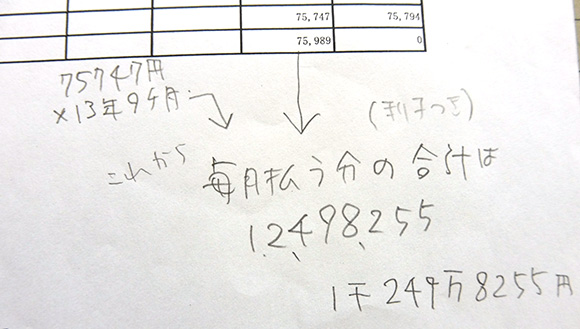 75,747 75,794
75,989 0
75747円
×13年9ヶ月
(利子つき)
これから
毎月払う分の合計は
12,498,255
1千249万8255円